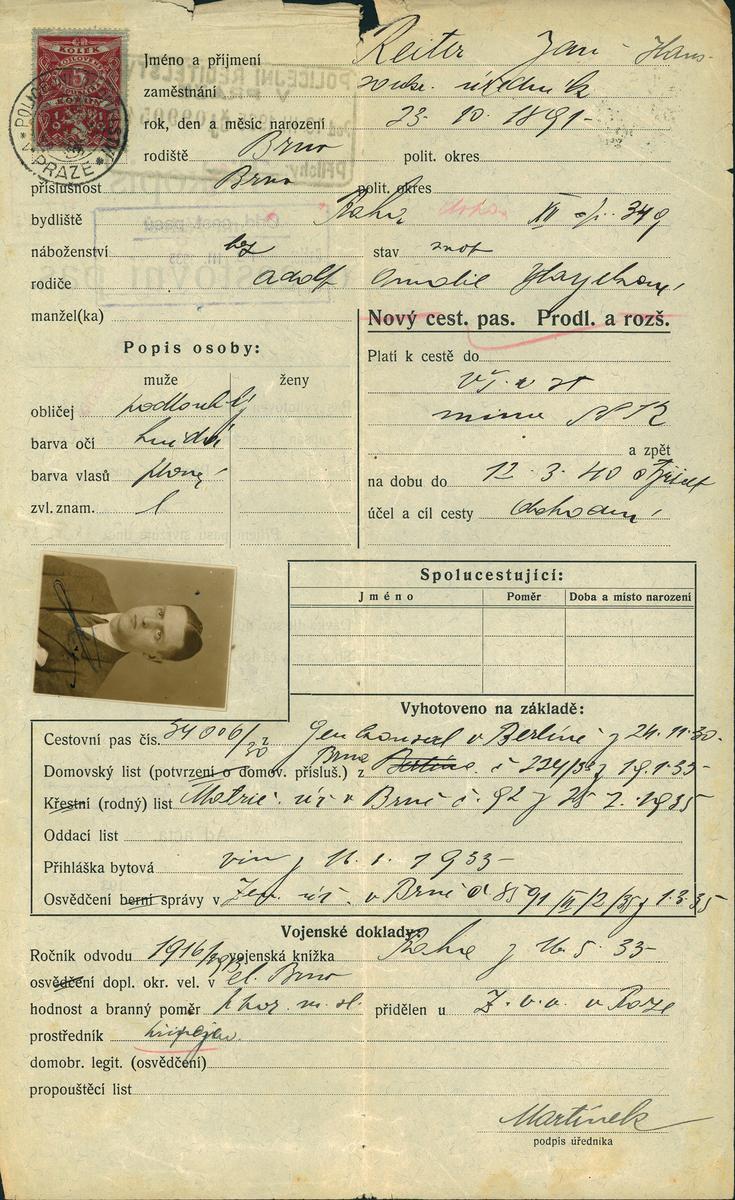 KOLEK
5
KORUN
V PRAZE
Jméno a příjmení Reiter Jan Hans
zaměstnání soukr. úředník
rok, den a měsíc narození 23. 10. 1891
rodiště Brno polit. okres
příslušnost Brno polit. okres
bydliště Praha XII 349
náboženství bez stav
rodiče Adolf Amalie
manžel(ka)
Nový cest. pas. Prodl. a rozš.
Popis osoby:
muže ženy
obličej podlouhlý
barva očí hnědé
barva vlasů
zvl. znam.
Platí k cestě do
mimo
a zpět
na dobu do 12. 3. 40
účel a cíl cesty obchodní
Spolucestující:
Jméno Poměr Doba a místo narození
Vyhotoveno na základě:
Cestovní pas čís. 34006/30 Gen. konsul v Berlíně z 24. 11. 30.
Domovský list (potvrzení o domov. přísluš.) z Brna č 224/33 z 19. 1. 33
Křestní (rodný) list Matrič. úř. v Brně č. 92 z 28 2. 1935
Oddací list
Přihláška bytová z 16. 1. 1933
Osvědčení berní správy v Zem. úř. v Brně č 8591/III/2/35 z 1. 3. 35
Vojenské doklady:
Ročník odvodu 1916/ vojenská knížka Praha z 16. 5. 33
osvědčení dopl. okr. vel. v Brno
hodnost a branný poměr přidělen u Z. v. v. v Praze
prostředník
domobr. legit. (osvědčení)
propouštěcí list
Martínek
podpis úředníka